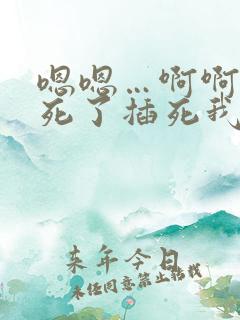 嗯嗯…啊啊
死了插死我
来年今日
未经同意禁止转载